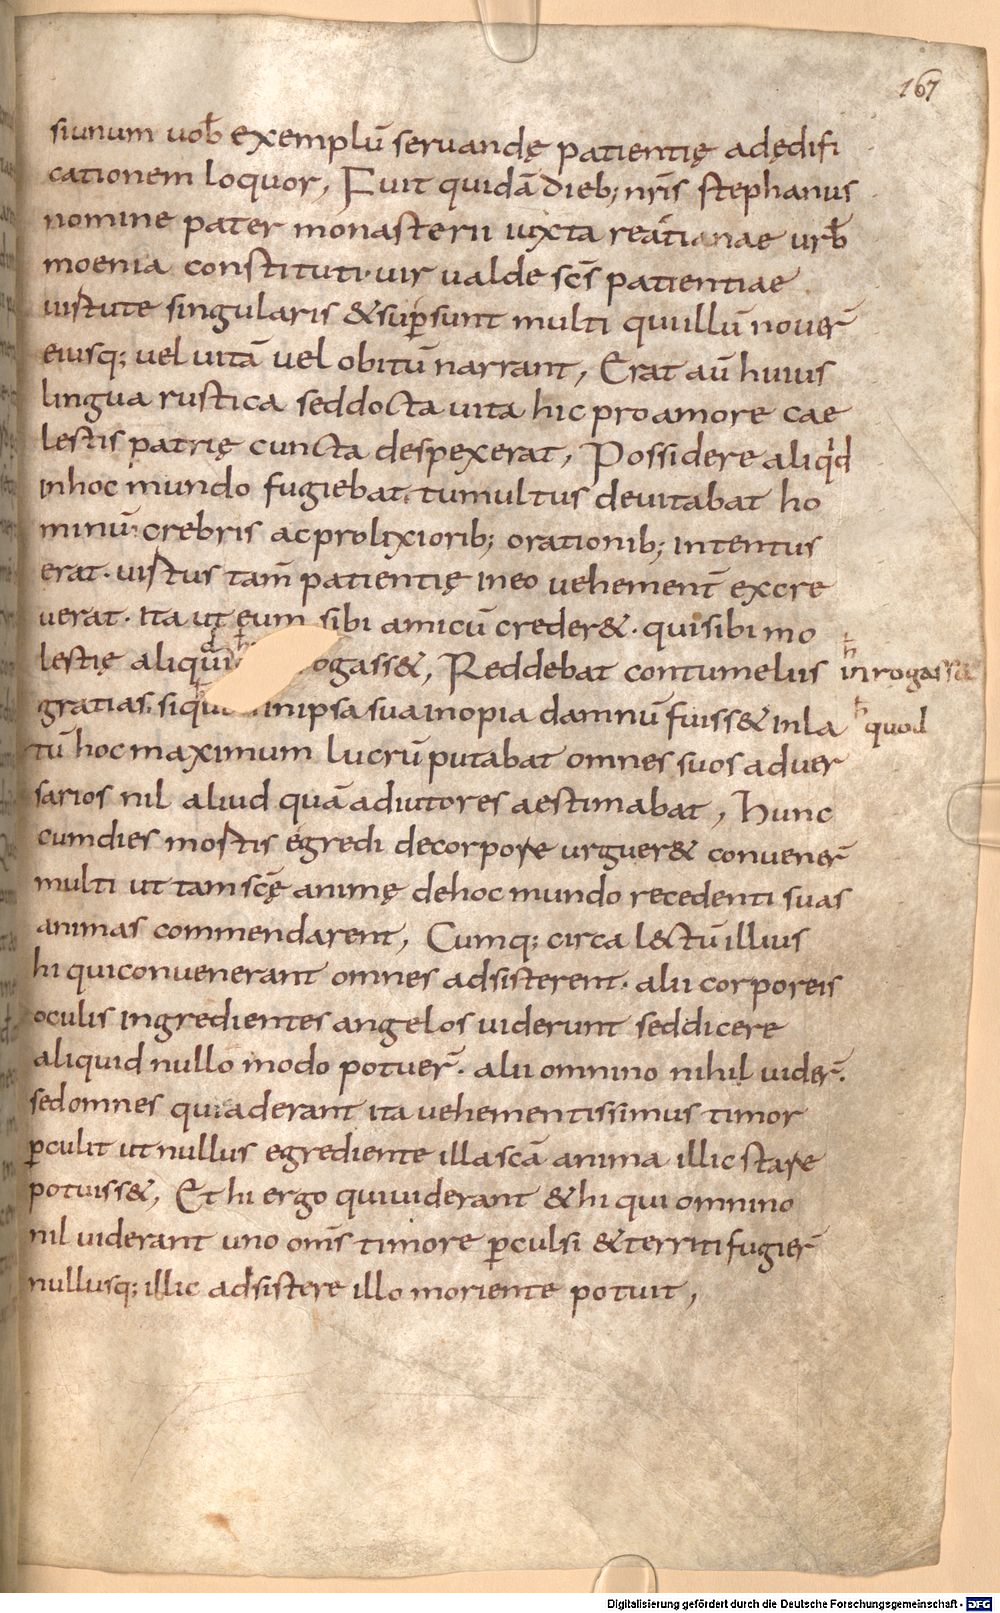 167
siunum uob̄ exemplū seruandę patientię adędifi
cationem loquor, Fuit quidā dieb; nr̄is stephanus
nomine pater monasterii iuxta reatianae urb̄
moenia constituti· uir ualde scs̄ patientiae
uirtute singularis & sup̄sunt multi qui illū nouer̄
eiusq; uel uitā uel obitū narrant, Erat aū huius
lingua rustica sed docta uita hic pro amore cae
lestis patrię cuncta despexerat, Possidere aliqd
in hoc mundo fugiebat. tumultus deuitabat ho
minū· crebris ac prolixiorib; orationib; intentus
erat· uirtus tam̄ patientię in eo uehement̄ excre
uerat· ita ut eum sibi amicū creder&· qui sibi mo
lestię aliqui ogass&, Reddebat contumeliis inrogass&
gratias. siqui in ipsa sua inopia damnū fuiss& inla quod
tū hoc maximum lucrū putabat omnes suos aduer
sarios nil aliud quā adiutores aestimabat, Hunc
cum dies mortis egredi de corpore urguer& conuener̄
multi ut tam scę̄ animę de hoc mundo recedenti suas
animas commendarent, Cumq; circa l&tū illius
hi qui conuenerant omnes adsisterent· alii corporeis
oculis ingredientes angelos uiderunt sed dicere
aliquid nullo modo potuer̄· alii omnino nihil uider̄·
sed omnes qui aderant ita uehementissimus timor
p̄culit ut nullus egrediente illa scā anima illic stare
potuiss&, Et hi ergo qui uiderant & hi qui omnino
nil uiderant uno om̄s timore p̄culsi & territi fugier̄
nullusq; illic adsistere illo moriente potuit,
Digitalisierung gefördert durch die Deutsche Forschungsgemeinschaft - DFG